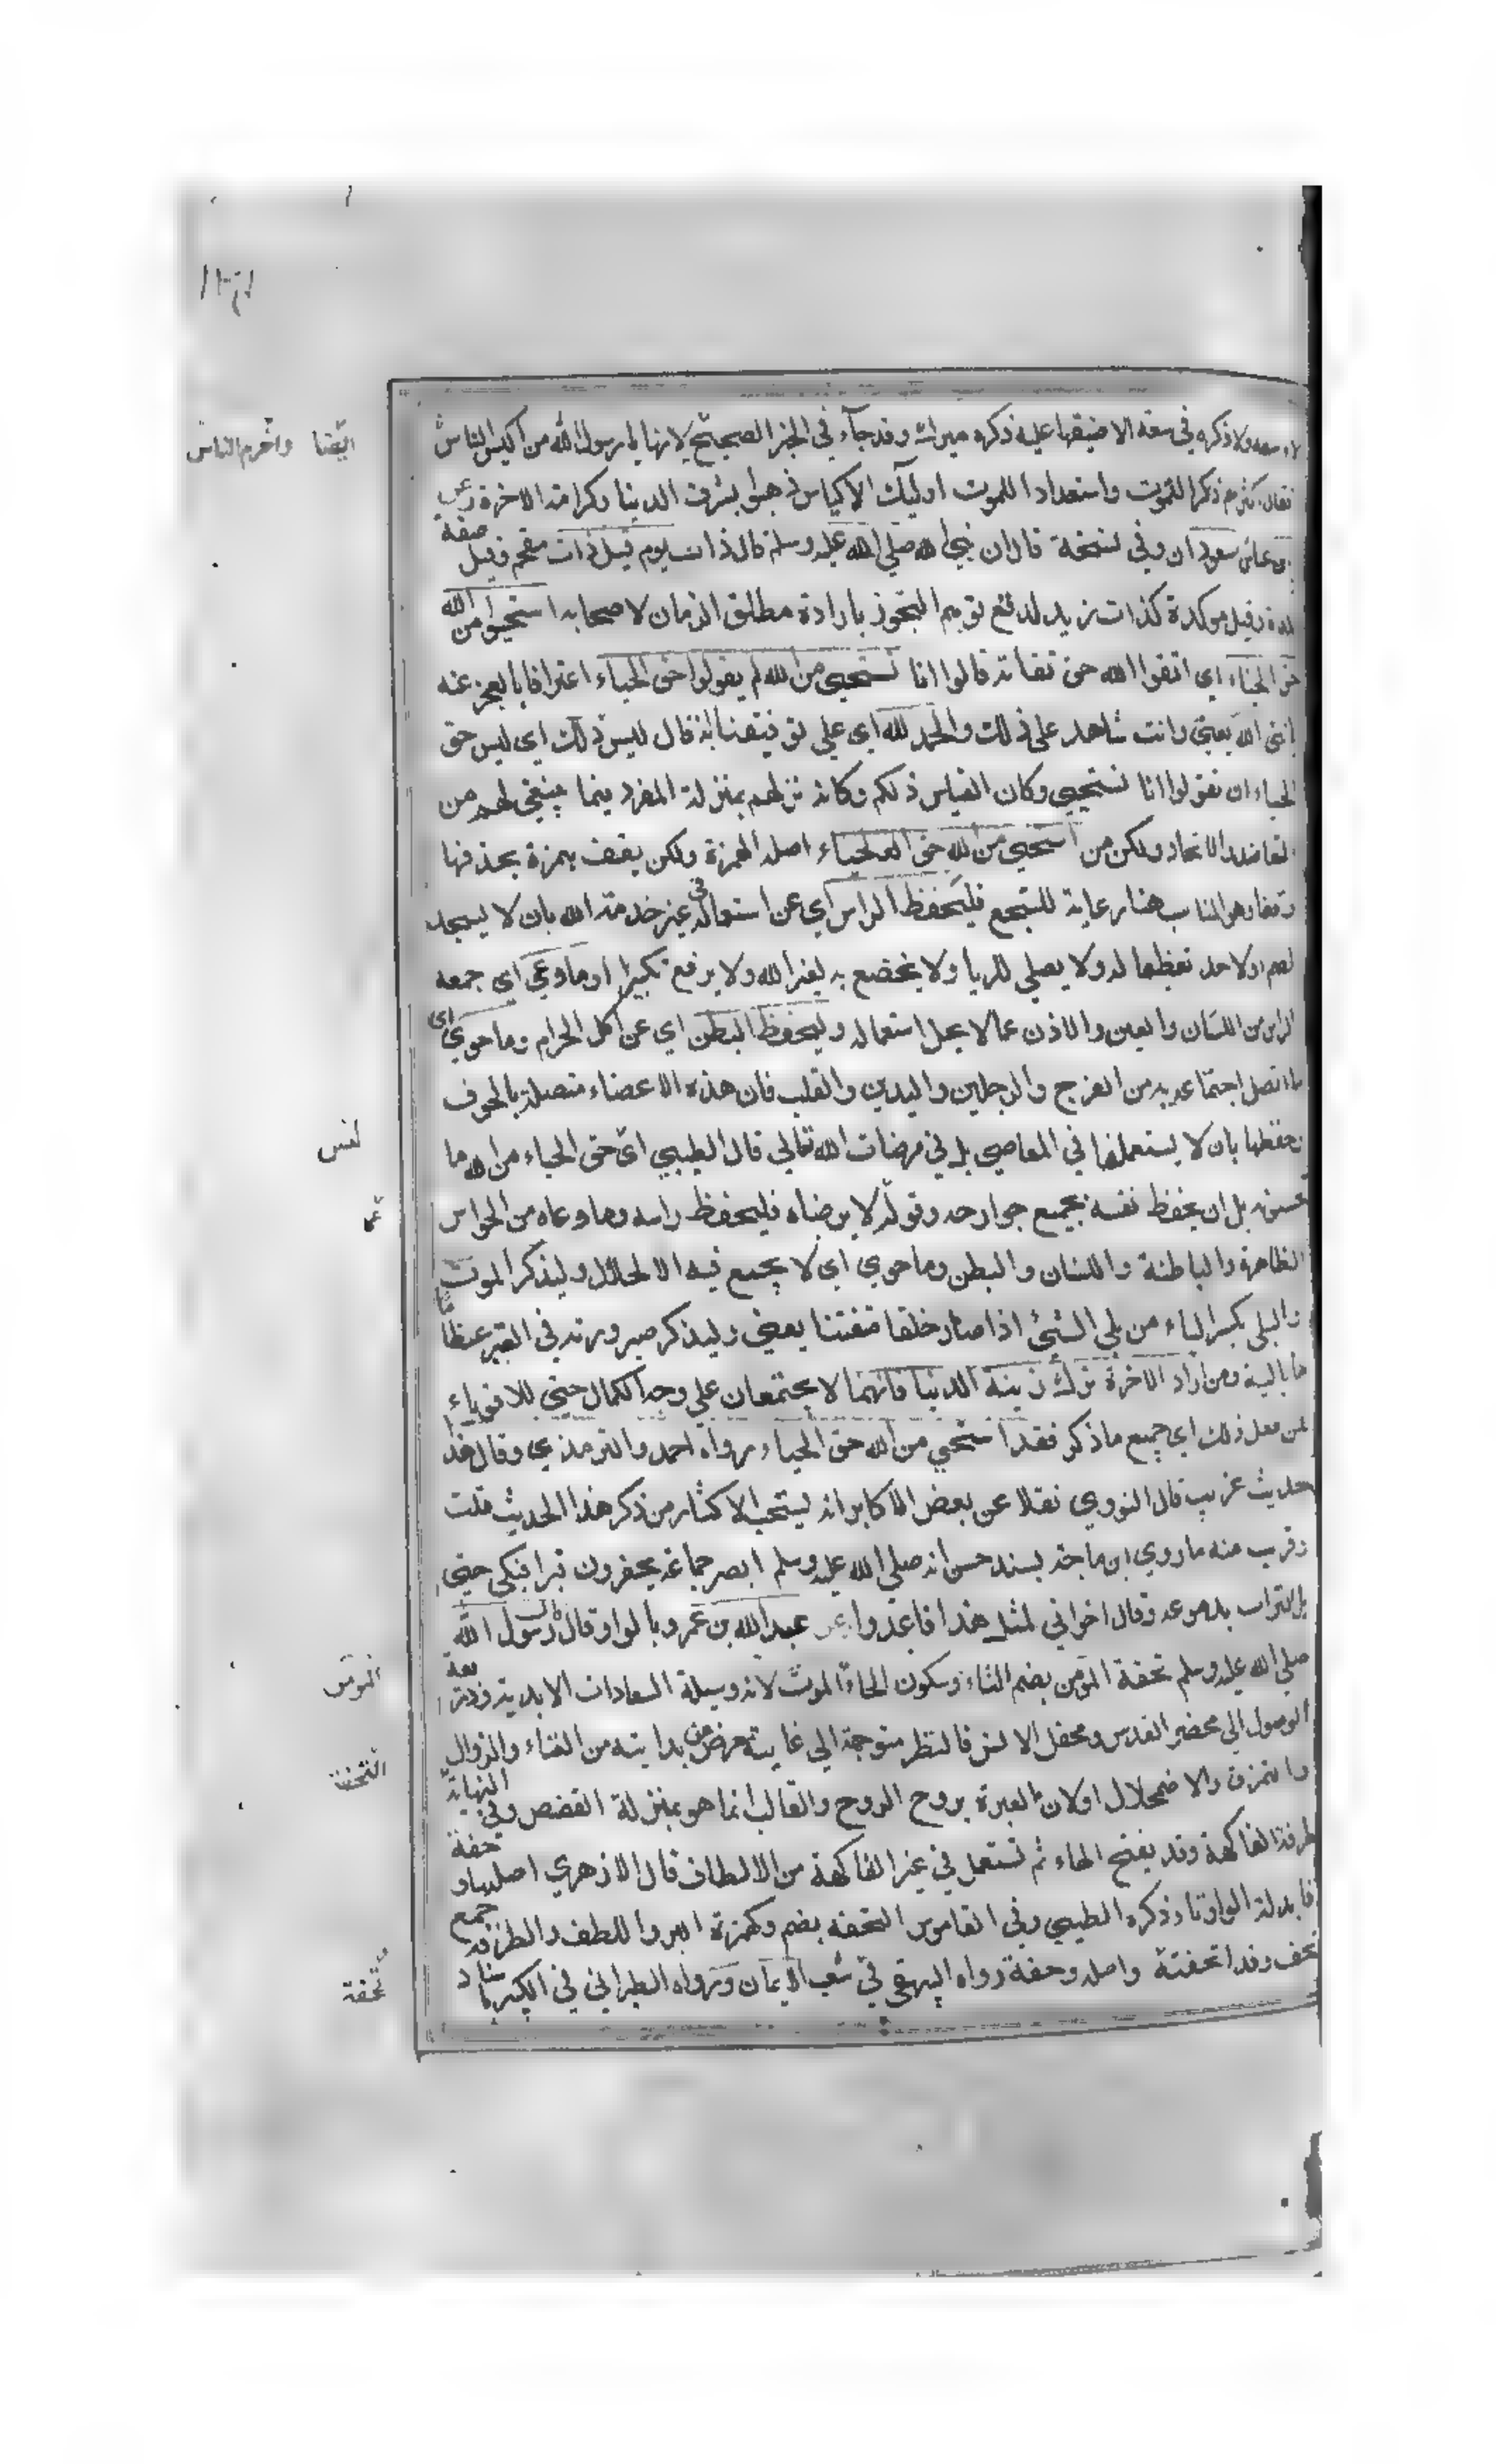 وسعه ولا ذكره في سعة الا ضيقها عليه ذكره ميرك وقد جاء في الخبر الصحيح لانه قيل يا رسول الله من اكيس الناس
ايضنا واحزم الناس
فقال اكثرهم ذكرا للموت واستعدادا للموت اوليك الاكياس ذهبوا بشرف الدنيا وكرامة الاخرة وعن
ابن مسعود ان وفي نسخة قال ان نبي الله صلي الله عليه وسلم قال ذات يوم قيل ذات مقحم وقيل صفة
لمدة وقيل موكدة كذات زيد لدفع توهم التجوز بارادة مطلق الزمان لاصحابه استحيوا من الله
حق الحياء اي اتقوا الله حق تقاته قالوا انا نستحيي من الله لم يقولوا حق الحياء اعترافا بالعجز عنه
يا نبي الله يعني وانت شاهد علي ذلك والحمد لله اي علي توفيقنا به قال ليس ذلك اي ليس حق
الحياء ان تقولوا انا نستحيي وكان القياس ذلكم وكانه نزلهم بمنزلة المفرد فيما ينبغي لهم من
التعاضد والاتحاد ولكن من استحيي من الله حق الحياء اصله الهمزة ولكن يقف بهمزة بحذفها
وقفا وهو المناسب هنا رعاية للسجع فليحفظ الراس اي عن استعماله في غير خدمة الله بان لا يسجد
لصنم اولاحد تعظيما له ولا يصلي للريا ولا يخضع به لغير الله ولا يرفع تكبرا وما وعي اي جمعه
الراس من اللسان والعين والاذن عما لا يحل استعماله وليحفظ البطن اي عن اكل الحرام وما حوي اي
ما اتصل اجتماعه به من الفرج والرجلين واليدين والقلب فان هذه الاعضاء متصلة بالجوف
وحفظها بان لا يستعملها في المعاصي بل في مرضات الله تعالي قال الطيبي اي حق الحياء من الله ما
ليس
تحسبونه بل ان يحفظ نفسه بجميع جوارحه وقوله لا يرضاه فليحفظ راسه وما وعاه من الحواس
عما
الظاهرة والباطنة واللسان والبطن وما حوي اي لا يجمع فيه الا الحلال وليذكر الموت
والبلي بكسر الباء من بلي الشيئ اذا صار خلقا متفتتا يعني وليذكر صيرورته في القبر عظا
ما بالية ومن اراد الاخرة ترك زينة الدنيا فانهما لا يجتمعان علي وجه الكمال حتي للاقوياء
فمن فعل ذلك اي جميع ما ذكر فقد استحيي من الله حق الحياء رواه احمد والترمذي وقال هذا
حديث غريب قال النووي نقلا عن بعض الاكابر انه يستحب الاكثار من ذكر هذا الحديث قلت
وقريب منه ما روي ابن ماجة بسند حسن انه صلي الله عليه وسلم ابصر جماعة يحفرون قبرا فبكي حتي
بل التراب بدموعه وقال اخواني لمثل هذا فاعدوا وعن عبد الله بن عمرو بالواو قال قال رسول الله
صلي الله عليه وسلم تحفة المؤمن بضم التاء وسكون الحاء الموت لانه وسيلة السعادات الابدية وذريعة
المؤمن
الوصول الي محضر القدس ومحفل الانس فالنظر متوجه الي غايته معرض عن بدايته من الفناء والزوال
والتمزق والاضمحلال اولان العبرة بروح الروح والقالب انما هو بمنزلة القفص وفي النهاية
التحفة
طرفة الفاكهة وقد يفتح الحاء ثم تستعمل في غير الفاكهة من الالطاف قال الازهري اصلها وحفة
فابدلت الواو تاء ذكره الطيبي وفي القاموس التحفة بضم وكهمزة البر واللطف والطرفة جمع
تحف وقد اتحفته واصله وحفة رواه البيهقي في شعب الايمان ورواه الطبراني في الكبير باسناد
تحفة